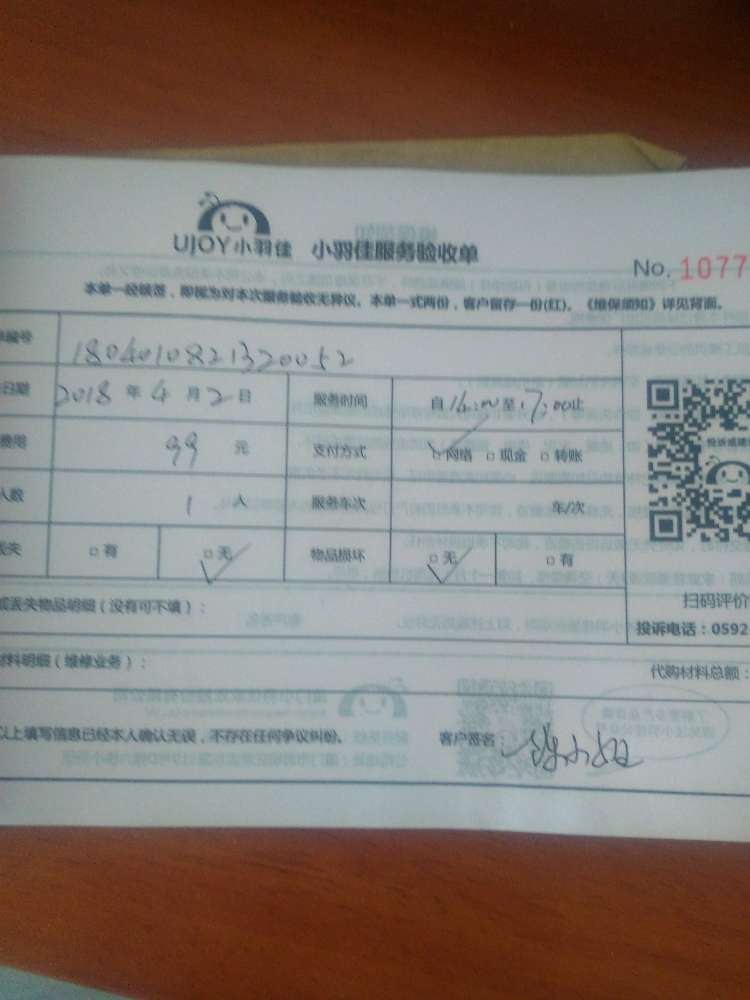 UJOY小羽佳 小羽佳服务验收单
No. 1077
本单一经核签，即视为对本次服务验收无异议。本单一式两份，客户留存一份(红)。《维保须知》详见背面。
编号 1804010821320052
日期 2018 年 4 月 2 日 服务时间 自 14:00 至 17:00 止
费用 99 元 支付方式 网络 现金 转账
人数 1 人 服务车次 车/次
丢失 有 无 物品损坏 无 有
投诉或建
扫码评价
或丢失物品明细（没有可不填）：
投诉电话：0592
材料明细（维修业务）：
代购材料总额：
以上填写信息已经本人确认无误，不存在任何争议纠纷。 客户签名： 陈小姐